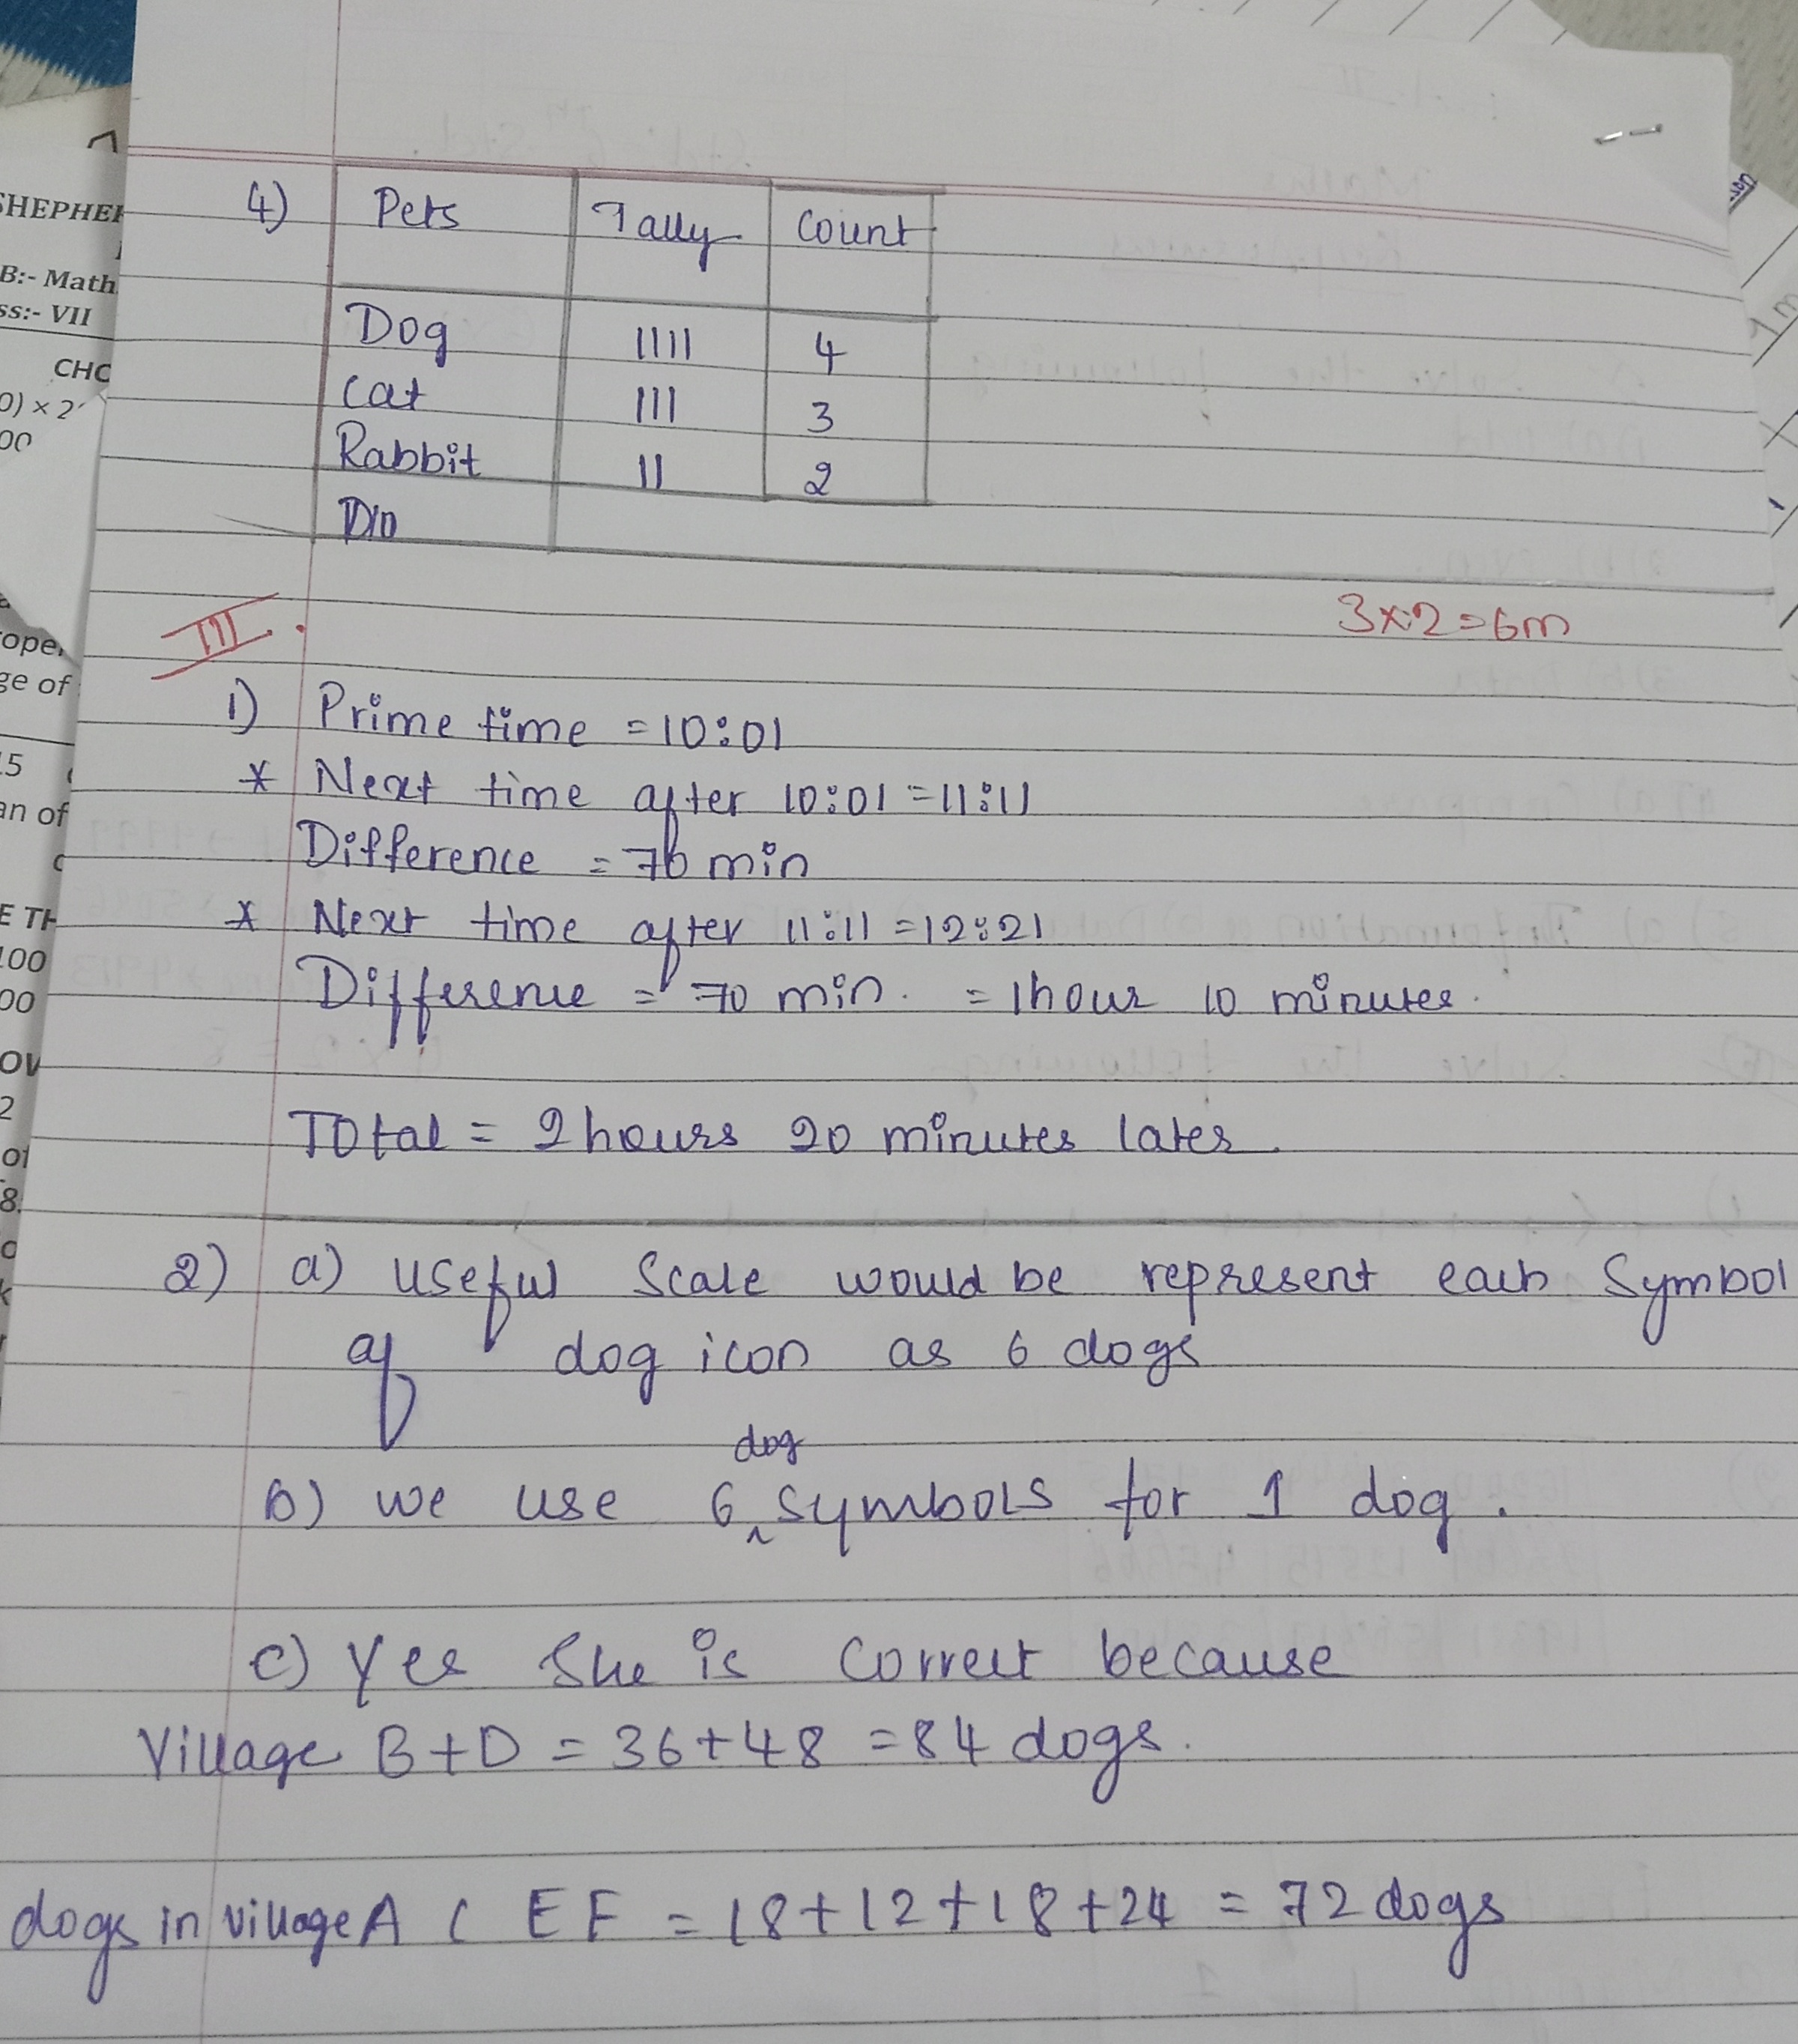 SHEPHE
B:- Math
ss:- VII
CHO
0) × 2
00
4) Pets Tally Count
Dog |||| 4
Cat ||| 3
Rabbit || 2
III.
3×2=6m
ge of
1) Prime time = 10:01
* Next time after 10:01 = 11:11
an of
Difference = 70 min
E TH
* Next time after 11:11 = 12:21
100
Difference = 70 min. = 1hour 10 minutes.
00
Total = 2 hours 20 minutes later
2) a) useful Scale would be represent each Symbol
of dog icon as 6 dogs
dog
b) we use 6 ^ symbols for 1 dog.
c) Yes She is correct because
Village B+D = 36+48 = 84 dogs.
dogs in village A C E F = 18+12+18+24 = 72 dogs